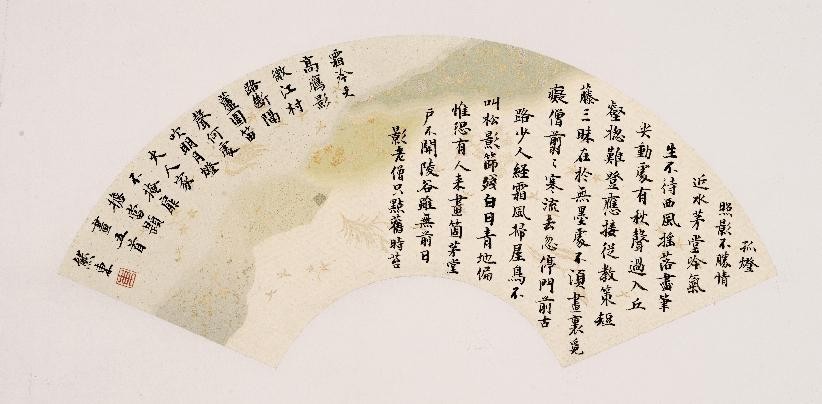 孤燈
照影不勝情
近水茅堂冷氣
生不待西風搖落盡筆
尖動處有秋聲過入丘
壑揔難登應接從教策短
藤三昧在於無墨處不湏畫裏覓
癡僧翦〻寒流去忽停門前古
路少人經霜風掃屋鳥不
叫松影篩殘白日青地偏
惟恐有人来畫箇茅堂
戶不開陵谷雖無前日
影老僧只點舊時苔
霜冷天
高鴈影
微江村
路斷隔
蘆圍笛
聲何處
吹明月燈
火人家
不掩扉
擔當題
畫五首